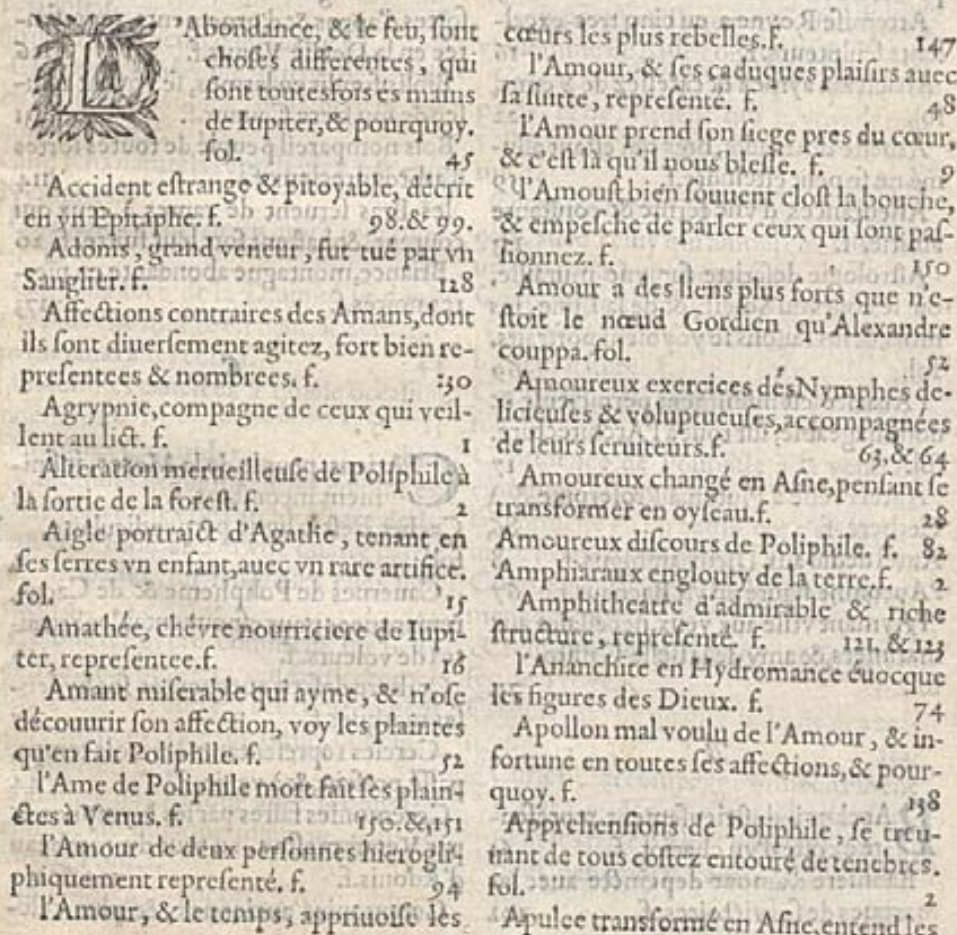 L'Abondance, & le feu, ſont
choſes differentes, qui
ſont toutesfois és mains
de Iupiter, & pourquoy.
fol. 45
Accident eſtrange & pitoyable, décrit
en vn Epitaphe. f. 98. & 99.
Adonis, grand veneur, fut tué par vn
Sanglier. f. 128
Affections contraires des Amans, dont
ils ſont diuerſement agitez, fort bien re-
preſentees & nombrees. f. 130
Agrypnie, compagne de ceux qui veil-
lent au lict. f. 1
Alteration merueilleuſe de Poliphile à
la ſortie de la foreſt. f. 2
Aigle portraict d'Agathe, tenant en
ſes ſerres vn enfant, auec vn rare artifice.
fol. 15
Amathée, chévre nourriciere de Iupi-
ter, repreſentee. f. 16
Amant miſerable qui ayme, & n'oſe
découurir ſon affection, voy les plaintes
qu'en fait Poliphile. f. 52
l'Ame de Poliphile mort fait ſes plain-
ctes à Venus. f. 150. & 151
l'Amour de deux perſonnes hierogli-
phiquement repreſenté. f. 94
l'Amour, & le temps, appriuoiſe les
cœurs les plus rebelles. f. 147
l'Amour, & ſes caduques plaiſirs auec
ſa ſuitte, repreſenté. f. 48
l'Amour prend ſon ſiege pres du cœur,
& c'eſt là qu'il nous bleſſe. f. 9
l'Amouſt bien ſouuent cloſt la bouche,
& empeſche de parler ceux qui ſont paſ-
ſionnez. f. 150
Amour a des liens plus forts que n'e-
ſtoit le nœud Gordien qu'Alexandre
couppa. fol. 52
Amoureux exercices des Nymphes de-
licieuſes & voluptueuſes, accompagnées
de leurs ſeruiteurs. f. 63. & 64
Amoureux changé en Aſne, penſant ſe
transformer en oyſeau. f. 28
Amoureux diſcours de Poliphile. f. 82
Amphiaraux englouty de la terre. f. 2
Amphitheatre d'admirable & riche
ſtructure, repreſenté. f. 121. & 123
l'Ananchite en Hydromance éuocque
les figures des Dieux. f. 74
Apollon mal voulu de l'Amour, & in-
fortune en toutes ſes affections, & pour-
quoy. f. 138
Apprehenſions de Poliphile, ſe treu-
uant de tous coſtez entouré de tenebres.
fol. 2
Apulee transformé en Aſne, entend les